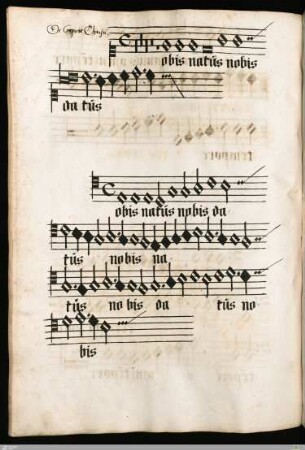 De Corpore Christi
obis natus nobis
da tus
obis natus nobis da
tus nobis na
tus no bis da tus no
bis